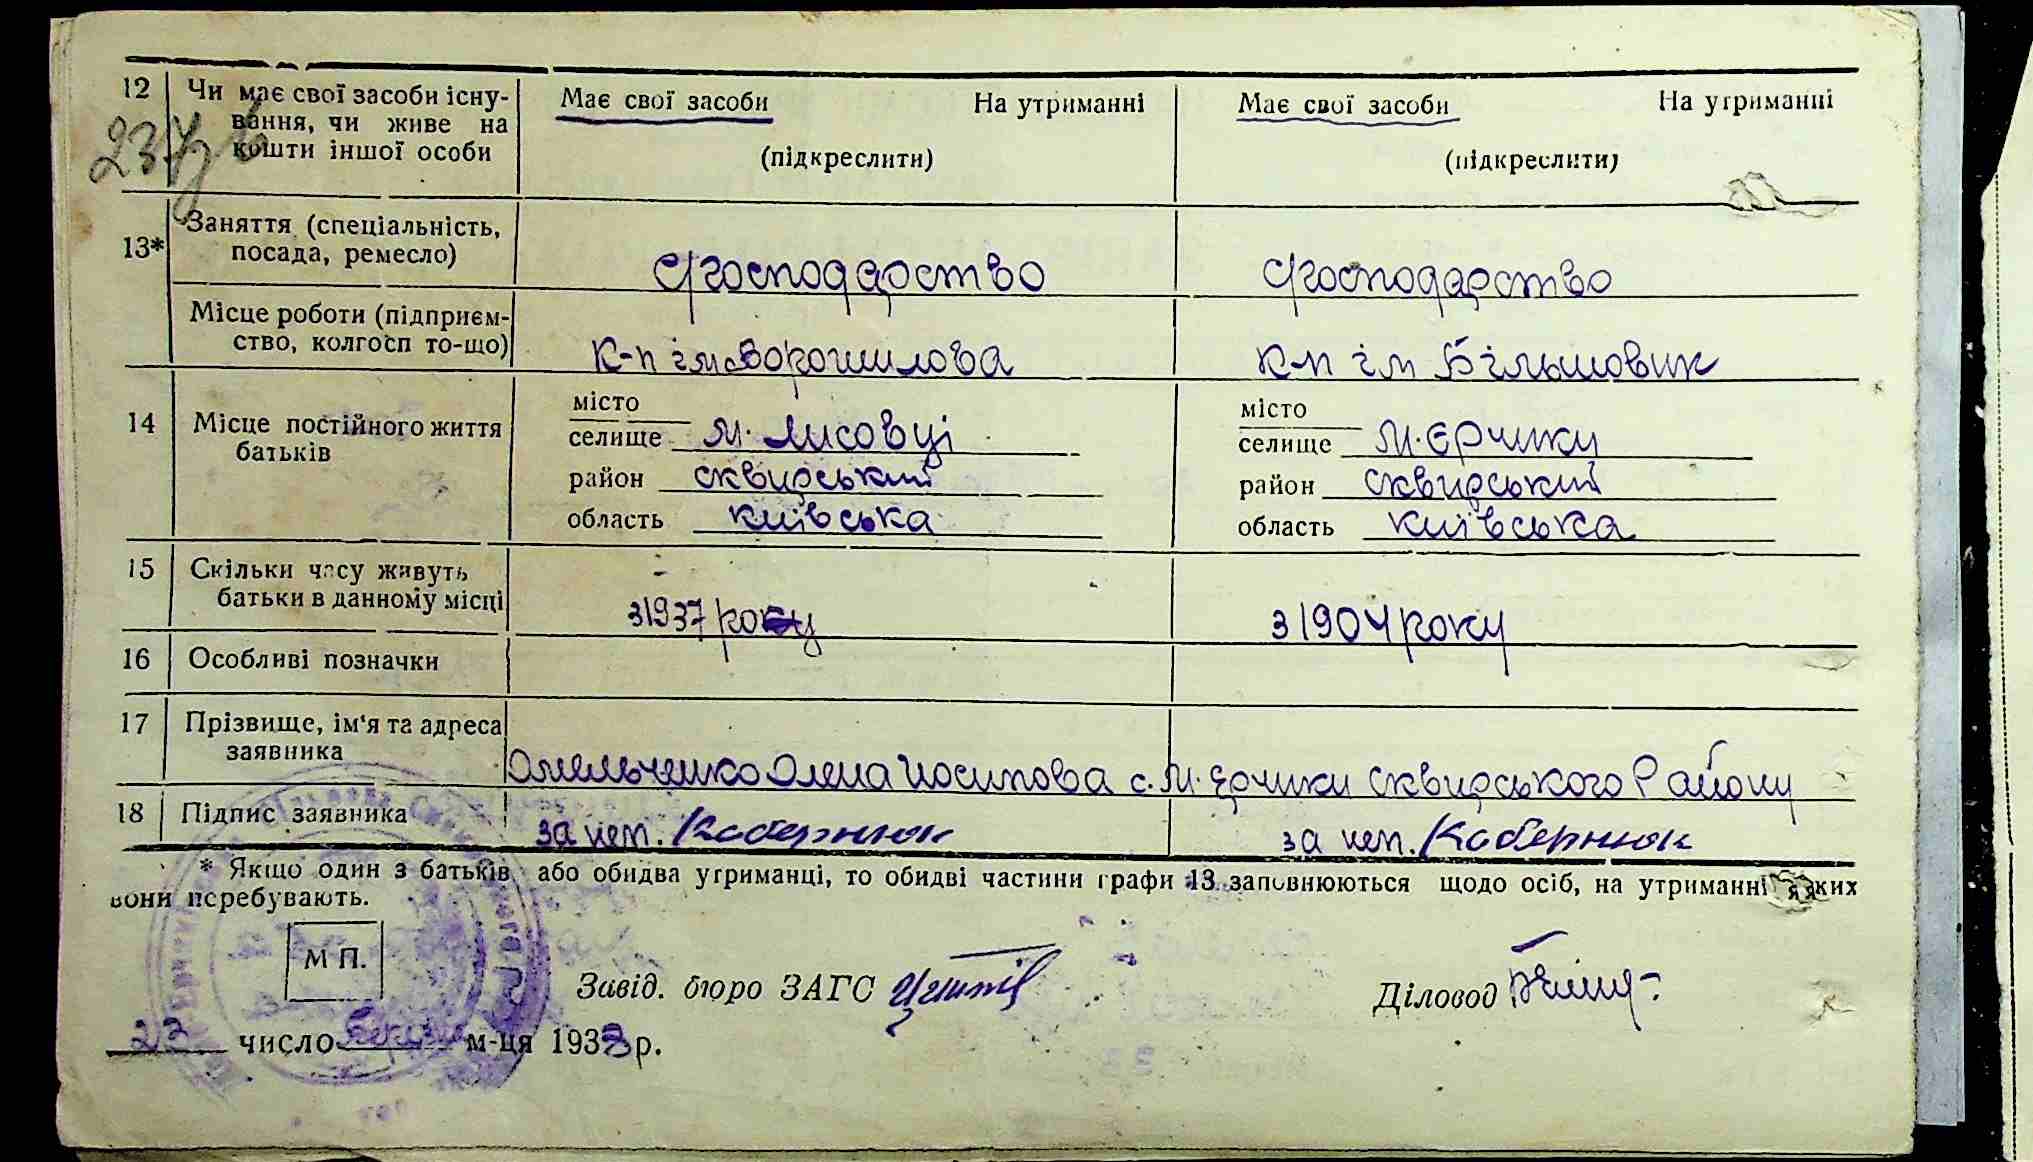 12 Чи має свої засоби існу- Має свої засоби На утриманні Має свої засоби На утриманні
вання, чи живе на
кошти іншої особи (підкреслити) (підкреслити)
237
Заняття (спеціальність,
13* посада, ремесло) с/господарство с/господарство
Місце роботи (підприєм-
ство, колгосп то-що) К-п ім. Ворошилова К-п ім Більшовик
14 Місце постійного життя місто місто
батьків селище М. Лисовці селище М. Єрчики
район сквирський район сквирський
область київська область київська
15 Скільки часу живуть
батьки в данному місці з 1937 року з 1904 року
16 Особливі позначки
17 Прізвище, ім'я та адреса
заявника Омельченко Олена Иосипова с. М. Єрчики сквирського Району
18 Підпис заявника за неп. Кобернюк за неп. Кобернюк
* Якщо один з батьків або обидва утриманці, то обидві частини графи 13 заповнюються щодо осіб, на утриманні яких
вони перебувають.
М П.
Завід. бюро ЗАГС Діловод
23 число м-ця 1938 р.